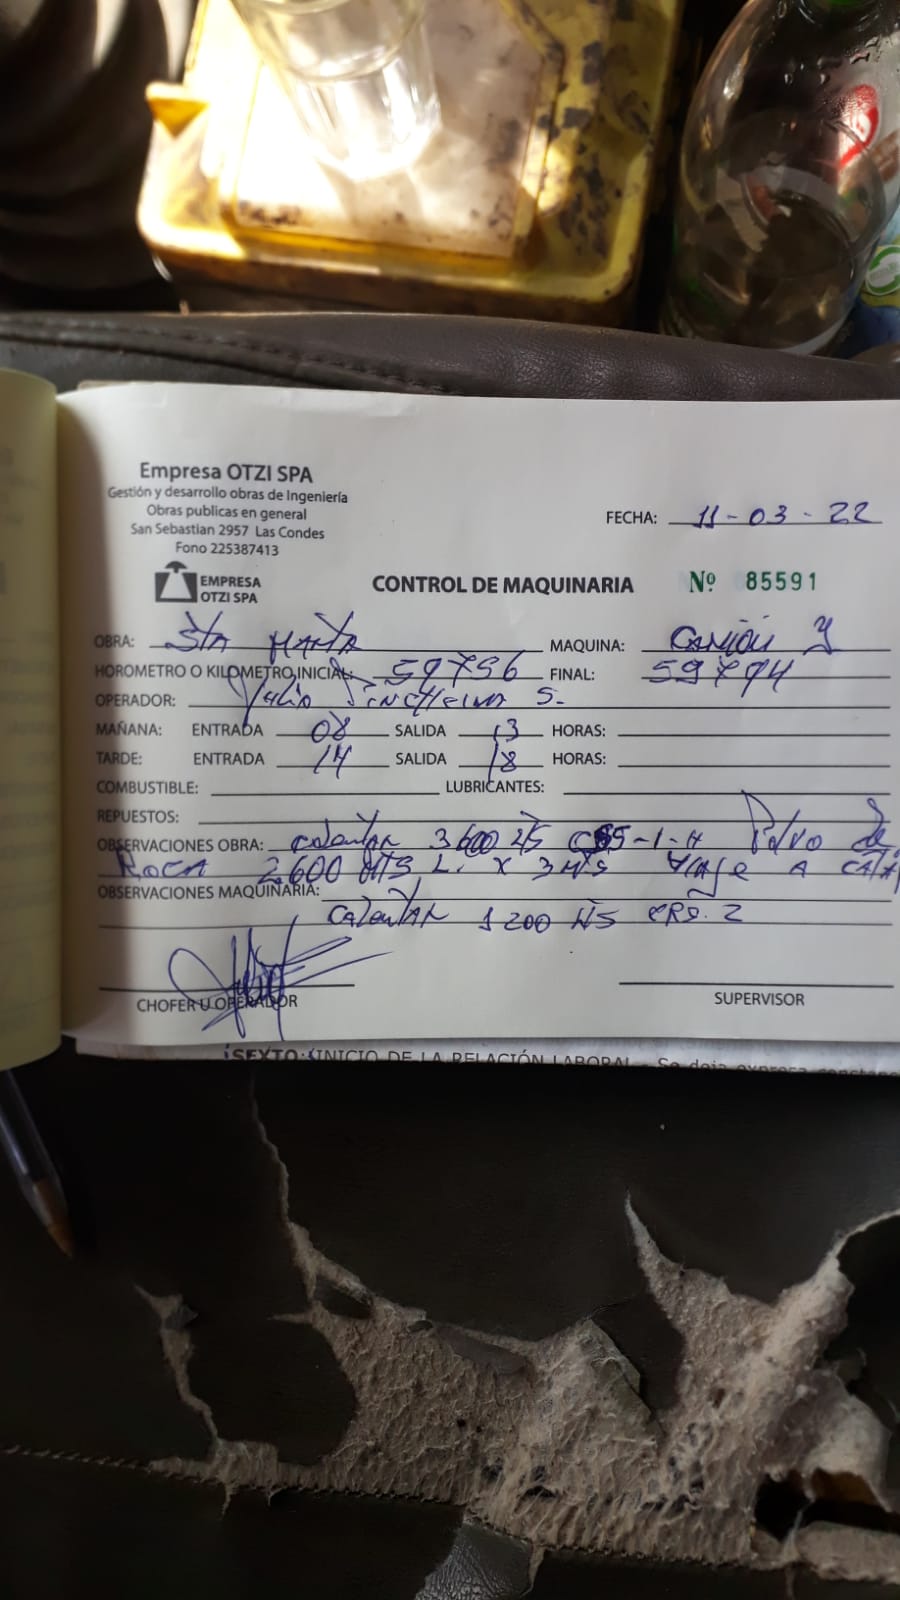 Empresa OTZI SPA
Gestión y desarrollo obras de Ingeniería
Obras publicas en general
San Sebastian 2957 Las Condes
Fono 225387413
FECHA: 11-03-22
EMPRESA
OTZI SPA
CONTROL DE MAQUINARIA Nº 85591
OBRA: STA MARTA MAQUINA: CAMION
HOROMETRO O KILOMETRO INICIAL: 59756 FINAL: 59794
OPERADOR: Julio S.
MAÑANA: ENTRADA 08 SALIDA 13 HORAS:
TARDE: ENTRADA 14 SALIDA 18 HORAS:
COMBUSTIBLE: LUBRICANTES:
REPUESTOS:
OBSERVACIONES OBRA: CALENTAR 3600 -1-H Polvo de
ROCA 2.600 MTS L. X 3 MTS VIAJE A
OBSERVACIONES MAQUINARIA:
CALENTAR 1200 CRS. 2
CHOFER U OPERADOR SUPERVISOR
SEXTO: INICIO DE LA RELACIÓN LABORAL.- Se deja expresa